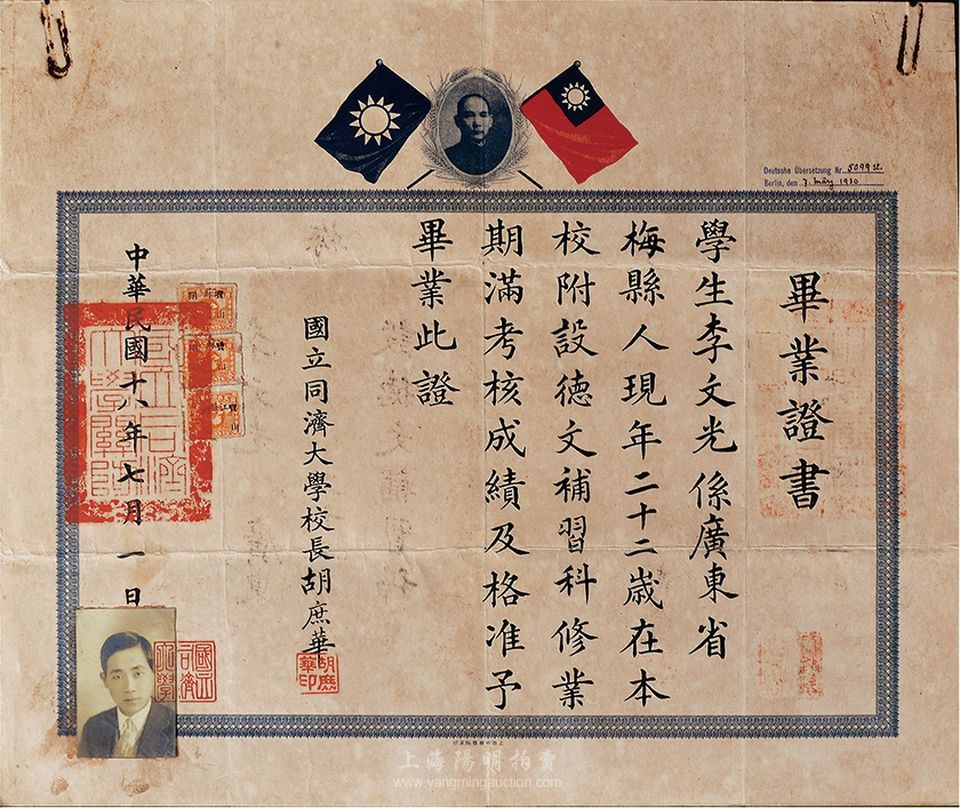 Deutsche Übersetzung Nr. 5099 st.
Berlin, den 7. März 1930
畢業證書
學生李文光係廣東省
梅縣人現年二十二歲在本
校附設德文補習科修業
期滿考核成績及格准予
畢業此證
國立同濟大學校長胡庶華
胡庶華印
中華民國十八年七月一日
國立同濟大學關防
國立同濟大學
上海陽明拍賣
www.yangmingauction.com